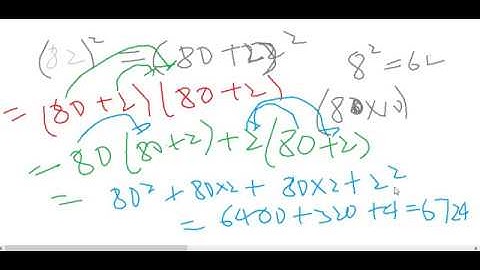 (82)² = (80+2)²
8² = 64
= (80+2)(80+2)
(80×10)
= 80(80+2)+2(80+2)
= 80² + 80×2 + 80×2 + 2²
= 6400+320+4=6724